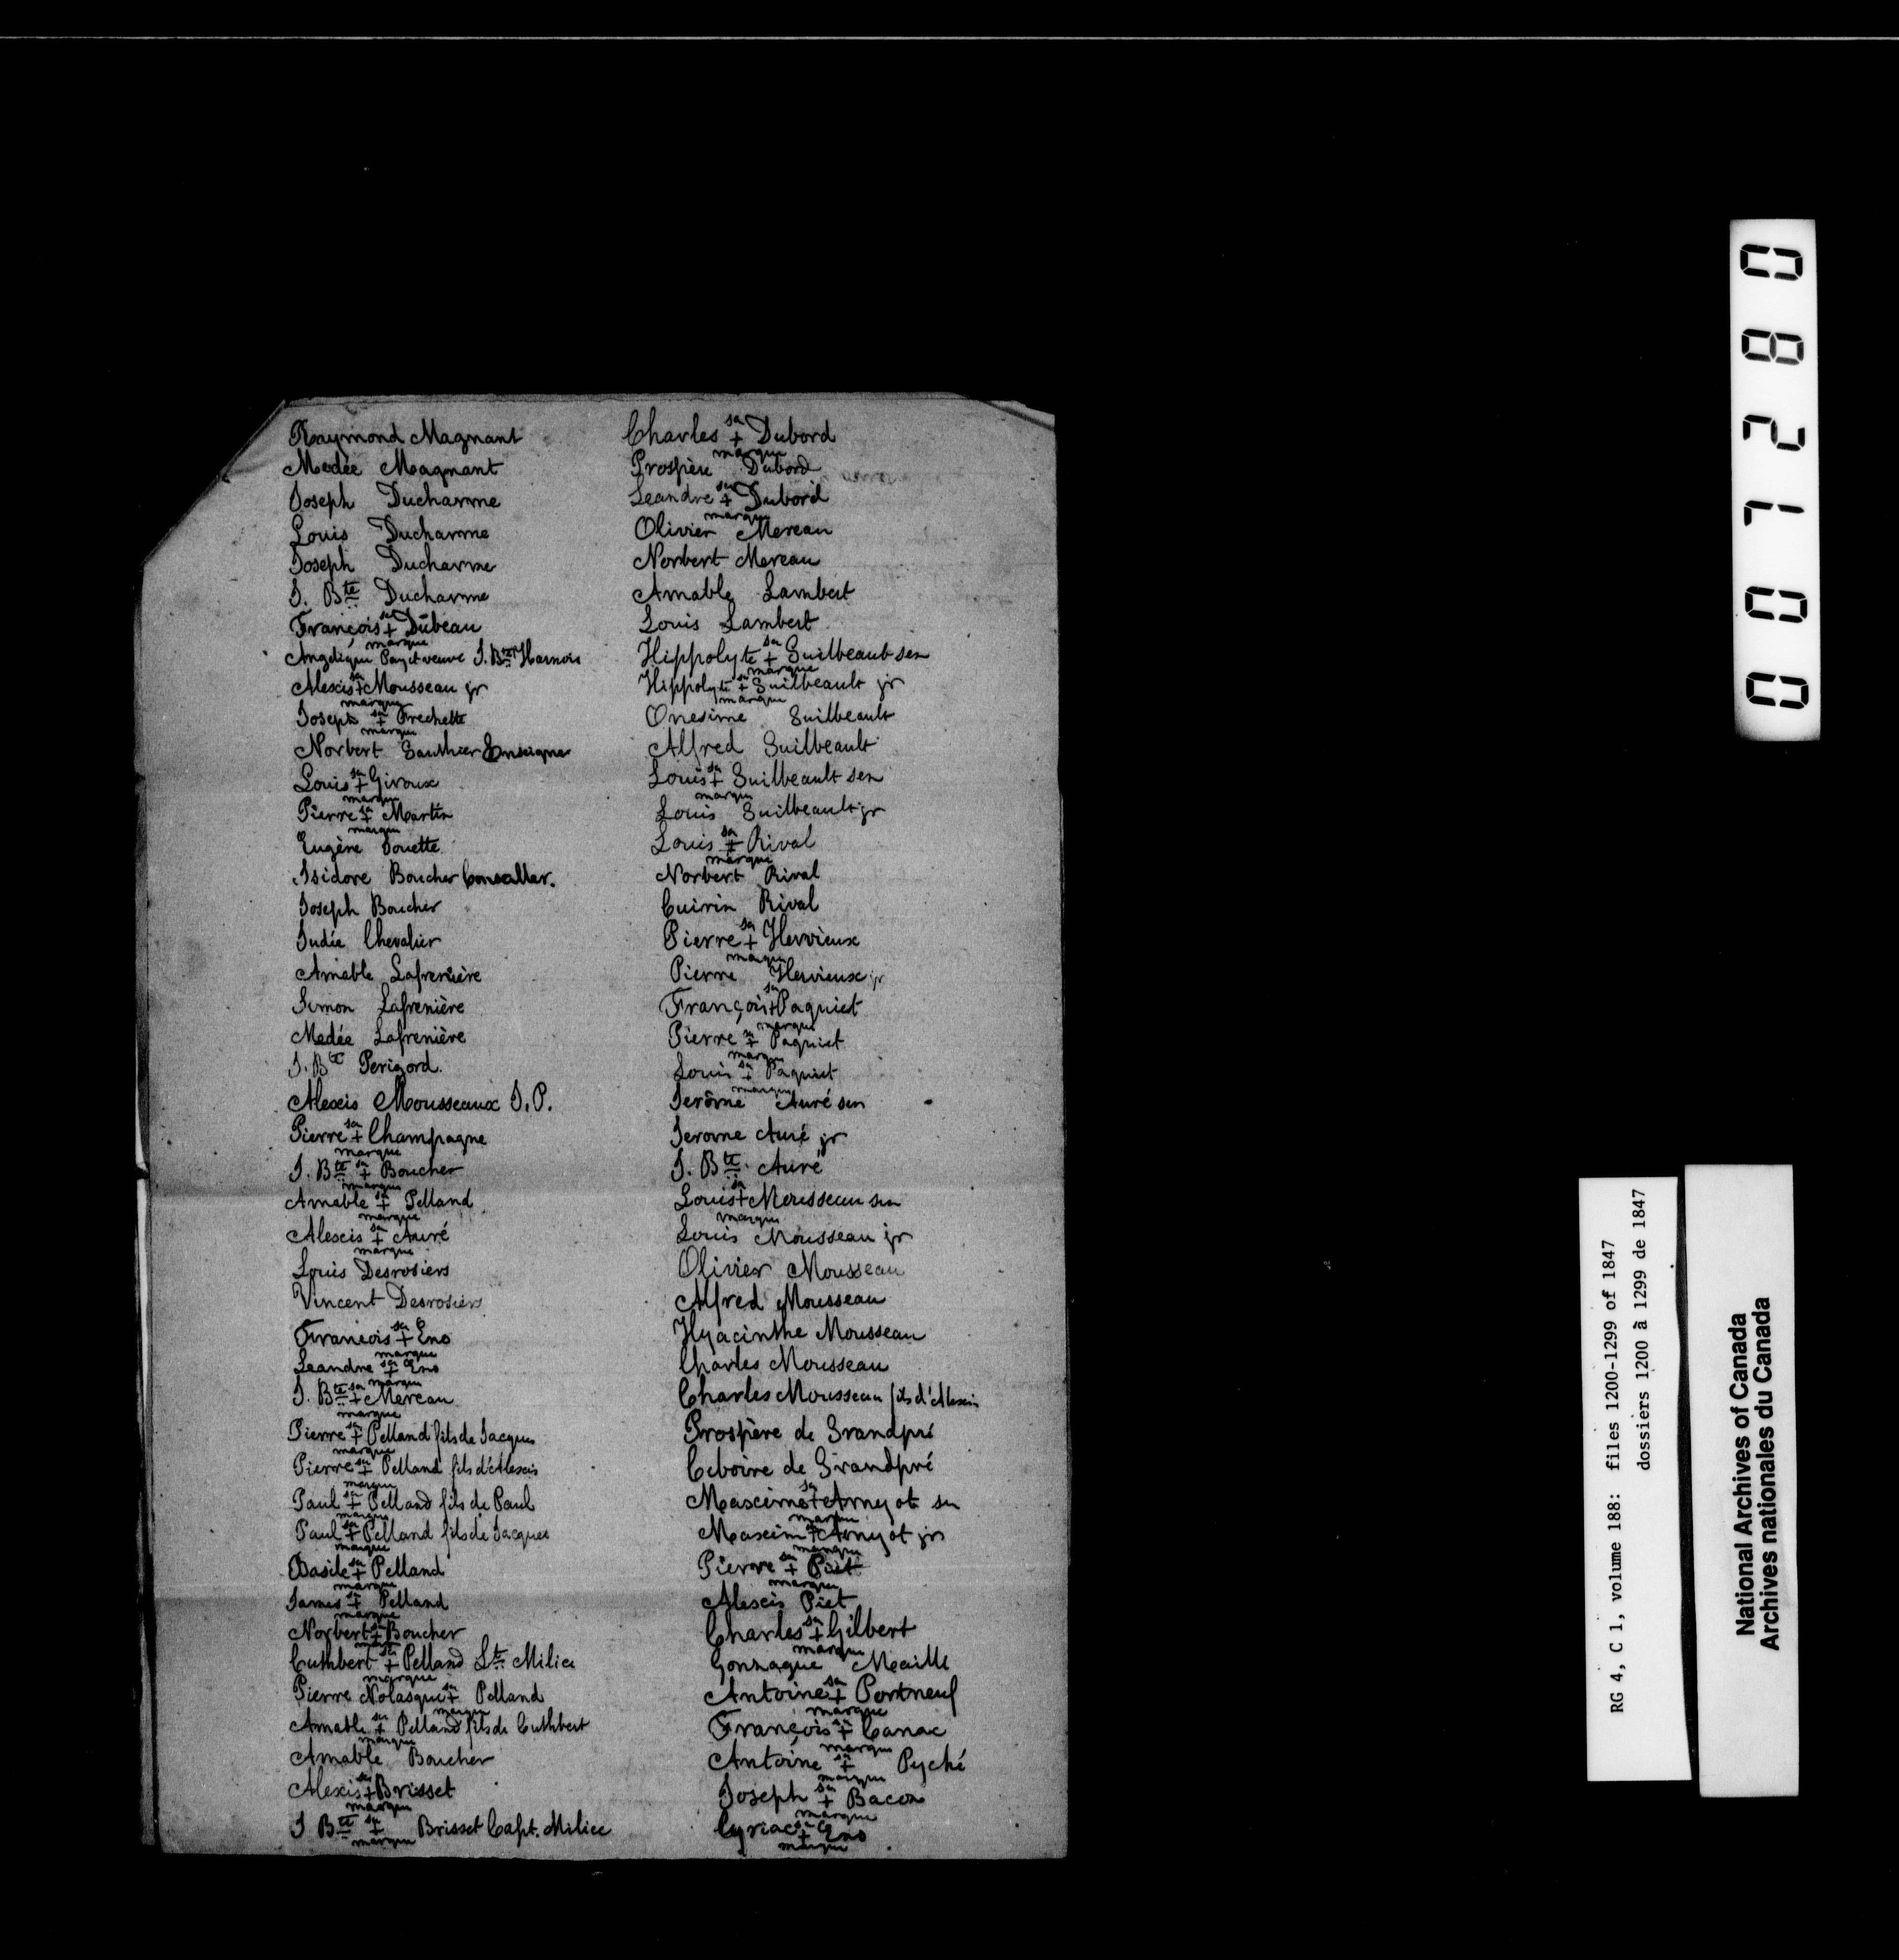 Raymond Magnant
Medée Magnant
Joseph Ducharme
Louis Ducharme
Joseph Ducharme
J. Bte Ducharme
François sa + marque Dubeau
Angelique Payet veuve J. Bte Harnois
Alexis sa + marque Mousseau jr
Joseph sa + marque Frechette
Norbert Gauthier Enseigne
Louis sa + marque Giroux
Pierre sa + marque Martin
Eugène Douette
Isidore Boucher Conseiller.
Joseph Boucher
Judée Chevalier
Amable Lafrenière
Simon Lafrenière
Medée Lafrenière
J. Bte Perigord.
Alexis Mousseaux J. P.
Pierre sa + marque Champagne
J. Bte sa + marque Boucher
Amable sa + marque Pelland
Alexis sa + marque Auré
Louis Desrosiers
Vincent Desrosiers
François sa + marque Eno
Leandre sa + marque Eno
J. Bte sa + marque Mereau
Pierre sa + marque Pelland fils de Jacques
Pierre sa + marque Pelland fils d'Alexis
Paul sa + marque Pelland fils de Paul
Paul sa + marque Pelland fils de Jacques
Basile sa + marque Pelland
James sa + marque Pelland
Norbert sa + marque Boucher
Cuthbert sa + marque Pelland Lt. Milice
Pierre Nolasque sa + marque Pelland
Amable sa + marque Pelland fils de Cuthbert
Amable Boucher
Alexis sa + marque Brisset
J Bte sa + marque Brisset Capt. Milice
Charles sa + marque Dubord
Prospère Dubord
Leandre sa + marque Dubord
Olivier Mereau
Norbert Mereau
Amable Lambert
Louis Lambert
Hippolyte sa + marque Guilbeault sen
Hippolyte sa + marque Guilbeault jr
Onesime Guilbeault
Alfred Guilbeault
Louis sa + marque Guilbeault sen
Louis Guilbeault jr
Louis sa + marque Rival
Norbert Rival
Cuirin Rival
Pierre sa + marque Hervieux
Pierre Hervieux jr
François sa + marque Paquiet
Pierre sa + marque Paquiet
Louis sa + marque Paquiet
Jerôme Auré sen
Jerome Auré jr
J. Bte Auré
Louis sa + marque Mousseau sen
Louis Mousseau jr
Olivier Mousseau
Alfred Mousseau
Hyacinthe Mousseau
Charles Mousseau
Charles Mousseau fils d'Alexis
Prospère de Grandpré
Ceboire de Grandpré
Maxime sa + marque Amyot sen
Maxim + marque Amyot jr
Pierre sa + marque Piet
Alexis Piet
Charles sa + marque Gilbert
Gonzague Maille
Antoine sa + marque Portneuf
François sa + marque Canac
Antoine sa + marque Pyché
Joseph sa + marque Bacon
Cyriac sa + marque Eno
0071280
RG 4, C 1, volume 188: files 1200-1299 of 1847
dossiers 1200 à 1299 de 1847
National Archives of Canada
Archives nationales du Canada